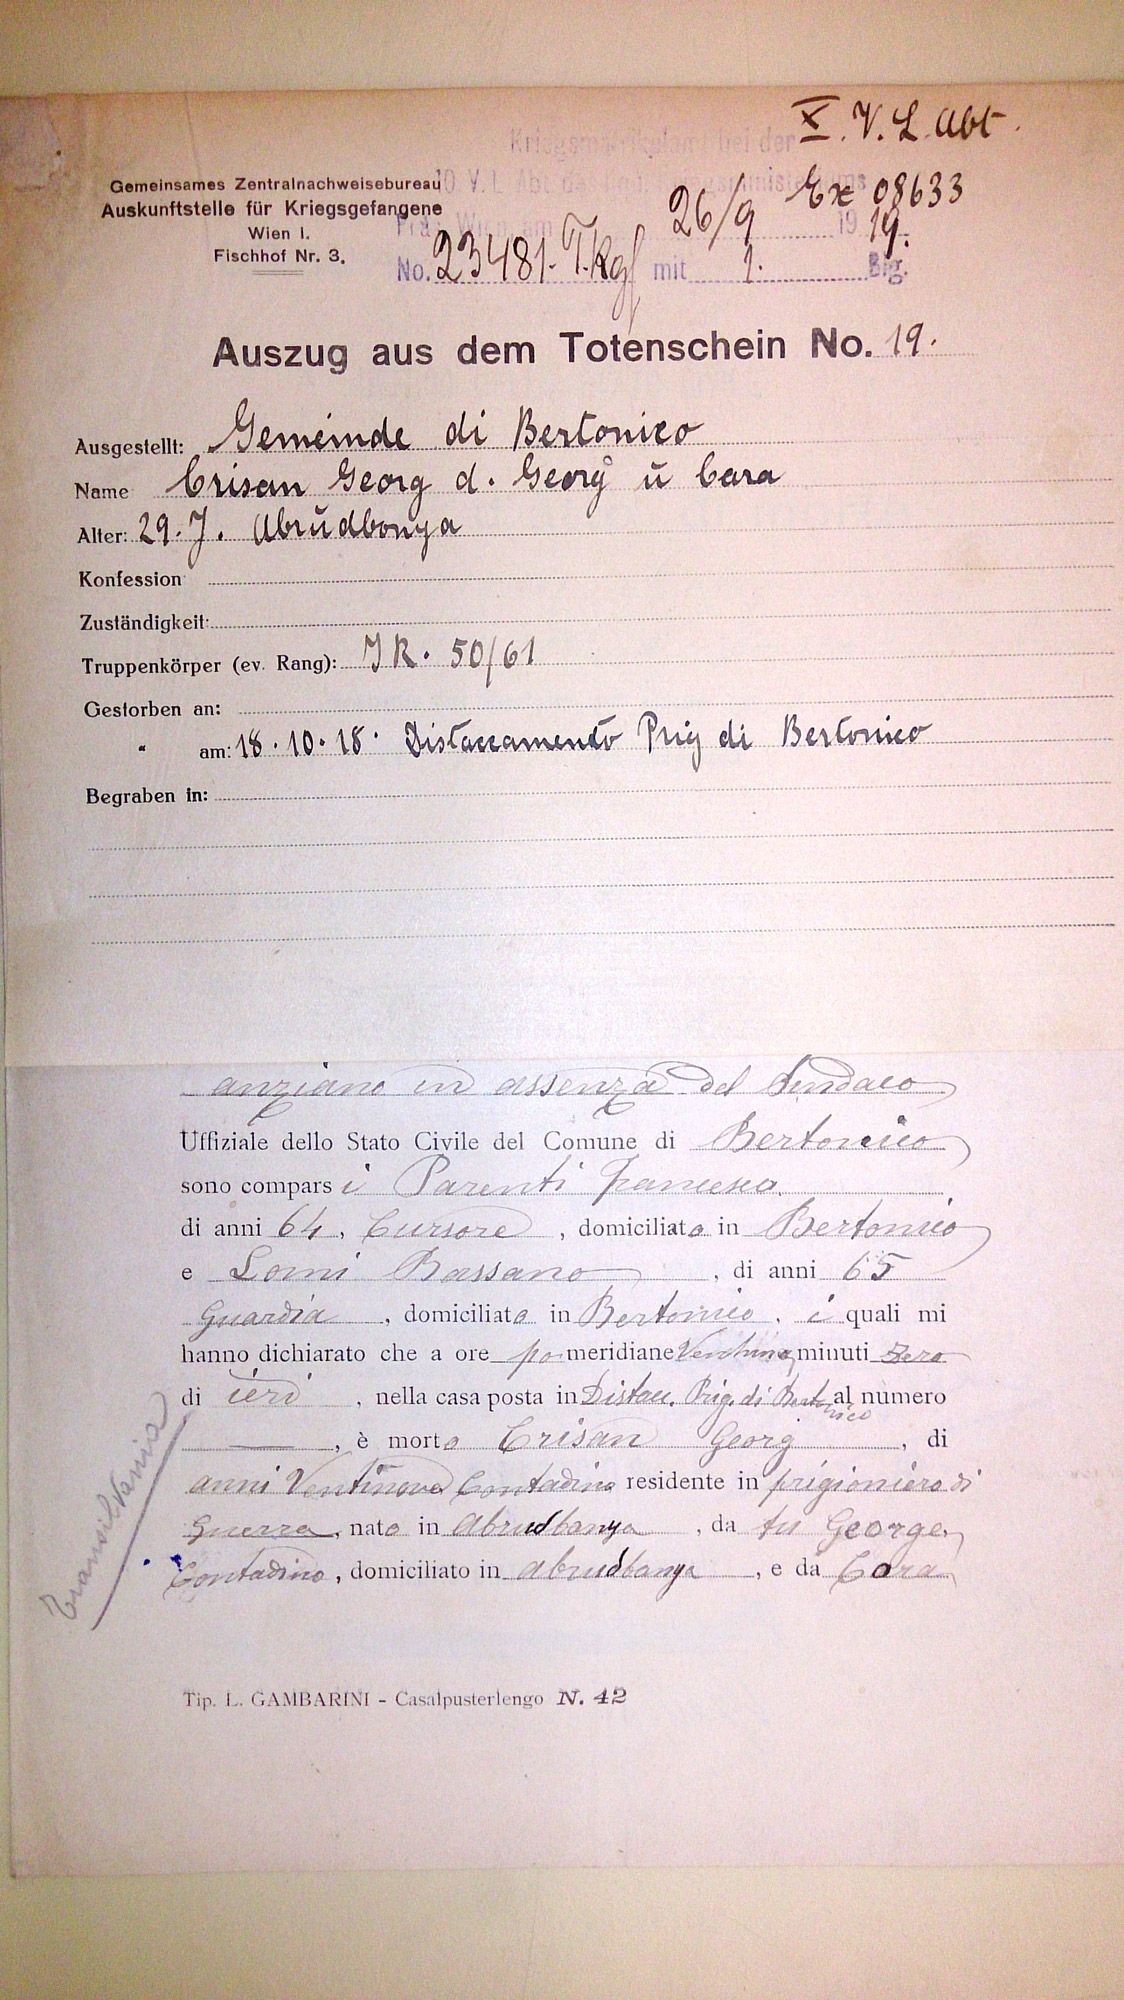 X. V. L. Abt.
Kriegsministeriums bei der
10. V. L. Abt. des
Gemeinsames Zentralnachweisebureau
Auskunftstelle für Kriegsgefangene
Wien I.
Fischhof Nr. 3.
Ex 08633
Präs. Wien, am 26/9 1919.
No. 23481. T. Kgf mit 1. Blg.
Auszug aus dem Totenschein No. 19.
Ausgestellt: Gemeinde di Bertonico
Name Crisan Georg d. Georg u Cara
Alter: 29. J. Abrudbonya
Konfession
Zuständigkeit:
Truppenkörper (ev. Rang): JR. 50/61
Gestorben an:
" am: 18.10.18. Distaccamento Prig di Bertonico
Begraben in:
anziano in assenza del Sindaco
Uffiziale dello Stato Civile del Comune di Bertonico
sono comparsi Parenti Francesco
di anni 64, Cursore, domiciliato in Bertonico
e Lomi Bassano, di anni 65
Guardia, domiciliato in Bertonico, i quali mi
hanno dichiarato che a ore pomeridiane Ventuna, minuti Zero
di ieri, nella casa posta in Distacc. Prig. di Bertonico al numero
—, è morto Crisan Georg, di
anni Ventinove Contadino residente in prigioniero di
Guerra, nato in Abrudbanya, da fu George,
Contadino, domiciliato in Abrudbanya, e da Cara,
Transilvania
Tip. L. GAMBARINI - Casalpusterlengo N. 42